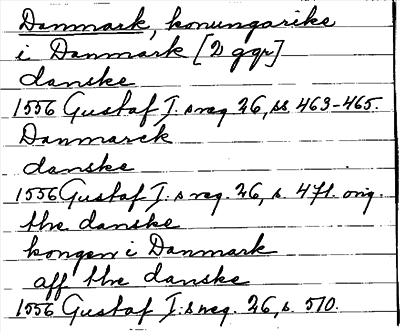 Danmark, konungarike
i Danmark [2 ggr]
danske
1556 Gustaf I:s reg. 26, ss 463-465.
Danmarck
danske
1556 Gustaf I:s reg. 26, s. 471. orig.
the danske
kongen i Danmark
aff the danske
1556 Gustaf I:s reg. 26, s. 510.